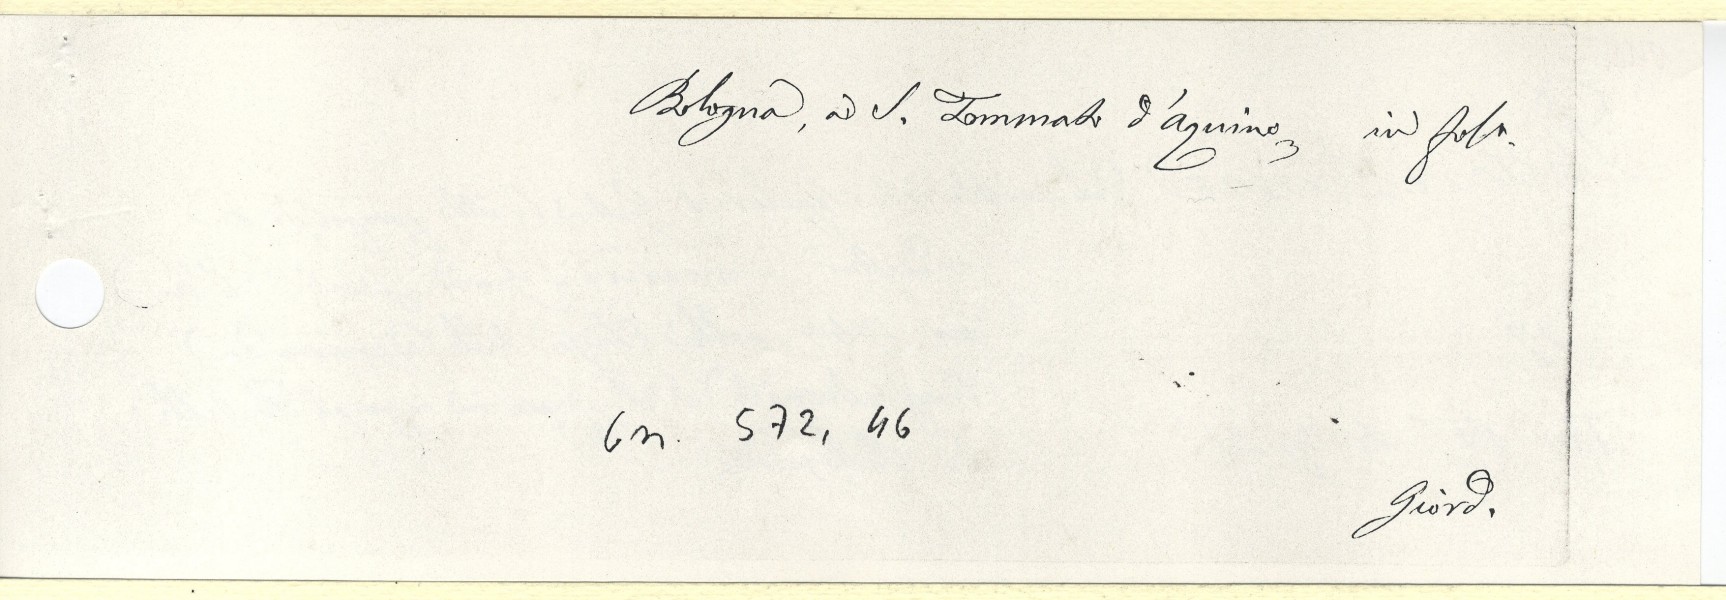 Bologna, a S. Tommaso d'Aquino, in fol.
Gn. 572, 46
Giord.